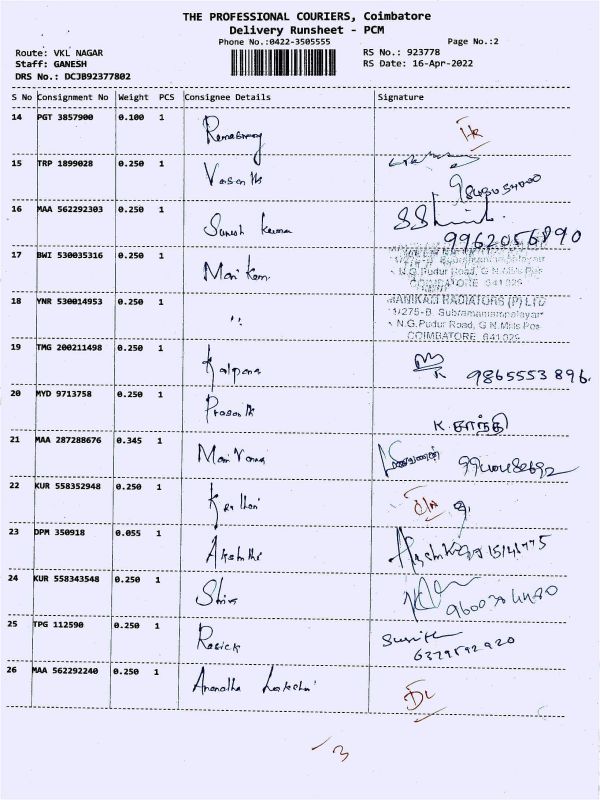 THE PROFESSIONAL COURIERS, Coimbatore
Delivery Runsheet - PCM
Phone No.:0422-3505555 Page No.:2
Route: VKL NAGAR RS No.: 923778
Staff: GANESH RS Date: 16-Apr-2022
DRS No.: DCJB92377802
S No Consignment No Weight PCS Consignee Details Signature
14 PGT 3857900 0.100 1
15 TRP 1899028 0.250 1 Vasanthi
16 MAA 562292303 0.250 1 Suresh Kumar
9962056890
17 BWI 530035316 0.250 1 Manikam
N.G.Pudur Road, G.N.Mills Pos
COIMBATORE 641029
18 YNR 530014953 0.250 1 "
MANIKAO RADIATORS (P) LTD
1/275-B. Subramaniampalayam
N.G.Pudur Road, G.N.Mills Pos
COIMBATORE 641029
19 TMG 200211498 0.250 1 Kalpana 9865553896.
20 MYD 9713758 0.250 1 Prasanth K. சாந்தி
21 MAA 287288676 0.345 1 Mani Vanna
22 KUR 558352948 0.250 1
23 DPM 350918 0.055 1 Akshithi
24 KUR 558343548 0.250 1 Shiva
25 TPG 112590 0.250 1 Ravick Sunith
6379592920
26 MAA 562292240 0.250 1 Anandha Lakshmi DL
3